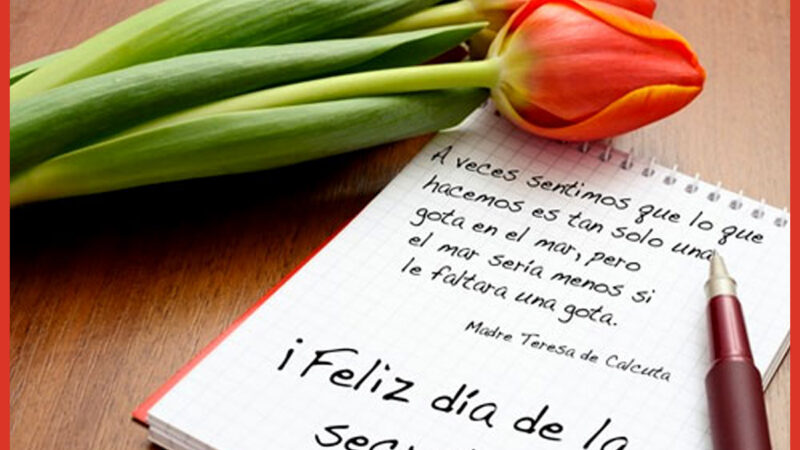 A veces sentimos que lo que
hacemos es tan solo una
gota en el mar, pero
el mar sería menos si
le faltara una gota.
Madre Teresa de Calcuta
¡Feliz día de la